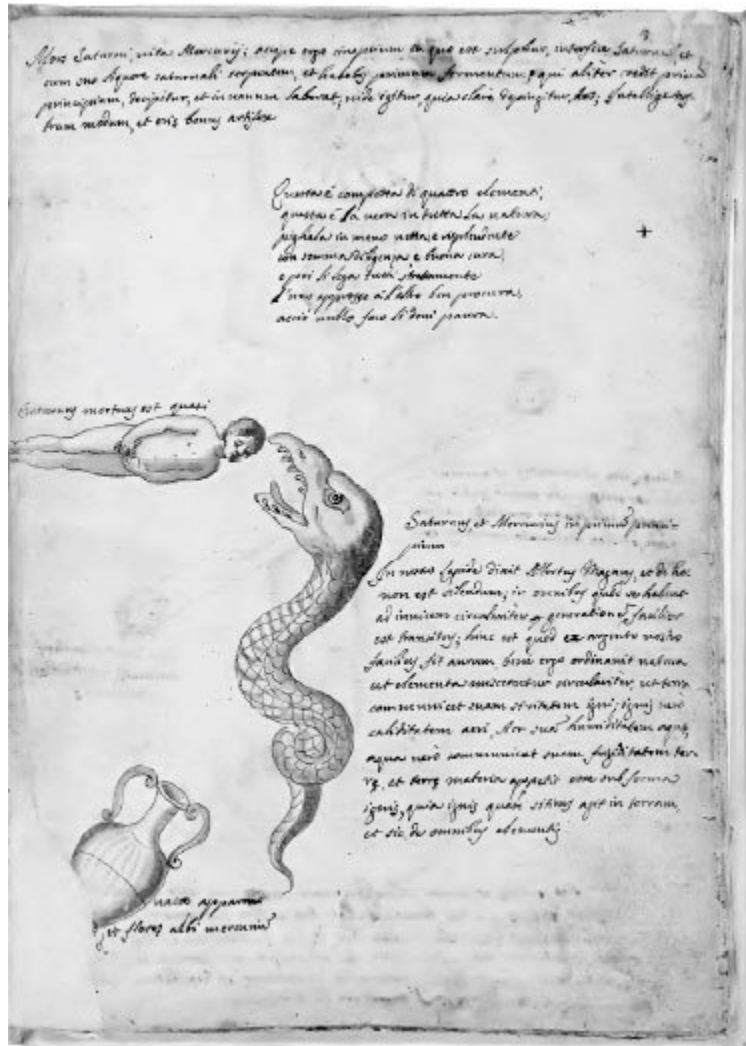 Mors Saturni, vita Mercurij; accipe ergo cinaprium in quo est sulphur, interfice Saturnum, et
cum suo liquore saturnali separatum, et habebis primum fermentum, qui aliter credit primum
principium, decipitur, et in vanum laborat, vide igitur, quia clare depingitur, hoc; Intellige
trum modum, et eris bonus artifex
Questa è composta di quattro elementi,
questa è la vera in tutta la natura,
pighala in meno netta, e
con somma diligenza e buona cura,
e poi li lega tutti strettamente
l'uno appresso à l'altro ben procura,
acciò nullo foco li doni paura.
Saturnus mortuus est quasi
Saturnus, et Mercurius in primum princi-
pium
In nostro Lapide dixit Albertus Magnus, et de hoc
non est silendum; in omnibus habent
ad invicem circulariter generatione facilior
est transitus; hinc est quod ex argento nostro
facilius fit aurum, bene ergo ordinavit natura
ut elementa miscerentur circulariter, ut terra
communicet suam siccitatem igni; ignis vero
caliditatem aeri, Aer suam humiditatem aquę,
aqua verò communicat suam frigiditatem ter-
rę, et terrę materia appetit esse sub forma
ignis, quia ignis quasi sitiens agit in terram,
et sic de omnibus elementis
apparent
et flores albi mercurij